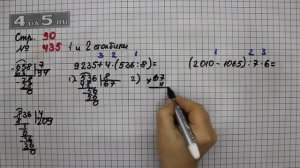 4 da 5.ru
Стр. 90
№ 435 1 и 2 столбики
3 2 1
9235+4·(536:8)=
1 2 3
(2010-1065):7·6=
658 7
63 94
28
28
0
1) 536 8
48 67
56
56
0
2) 67
× 4
836 4
8 209
36
36
0